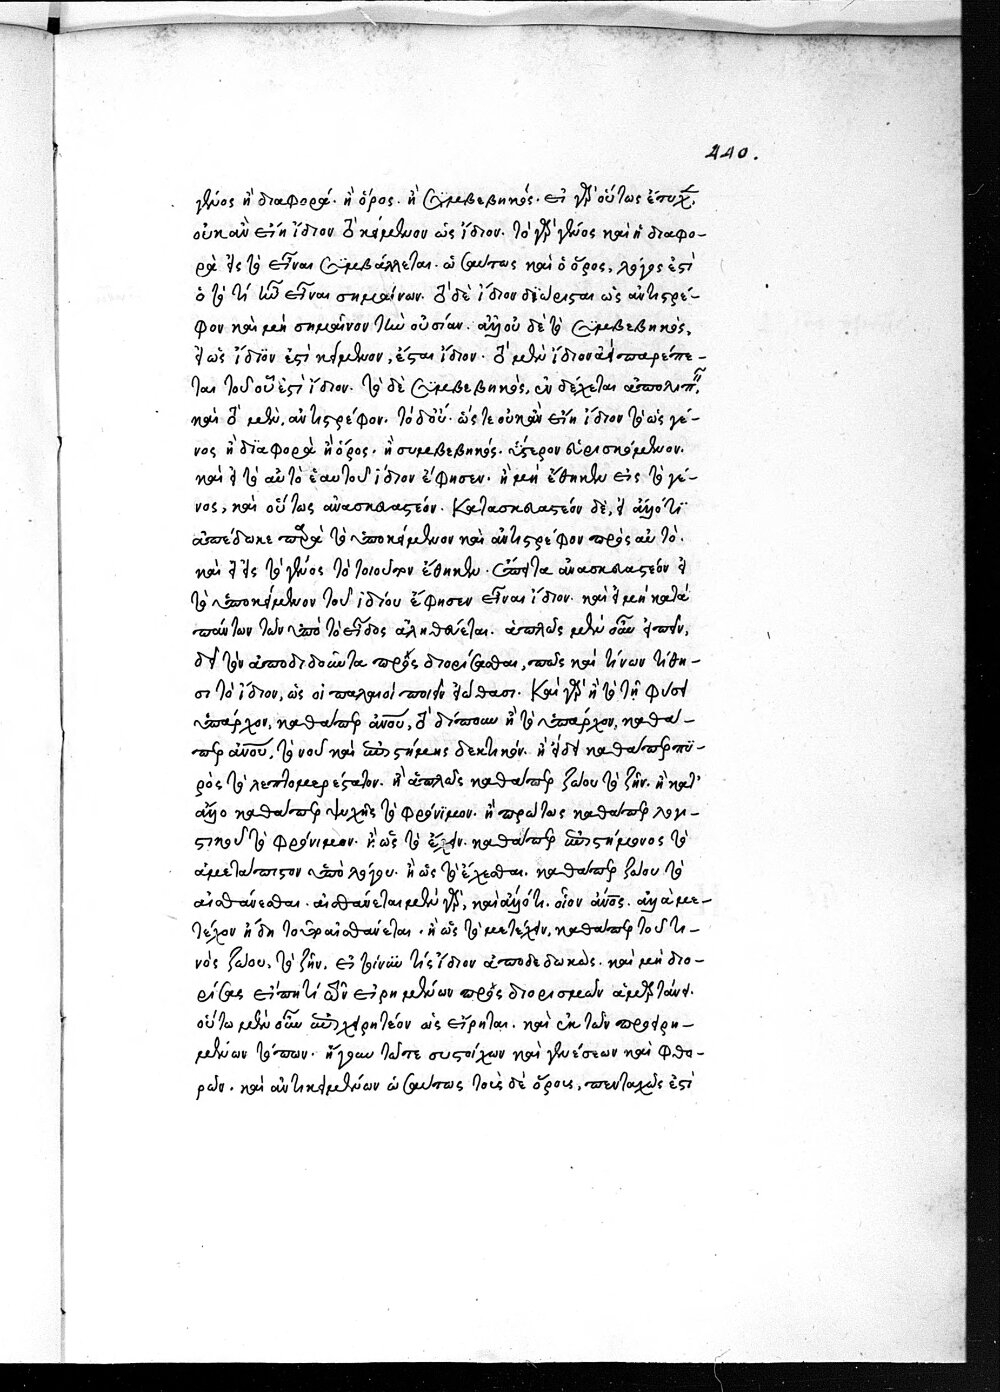 440.
γένος ἢ διαφορά. ἢ ὅρος. ἢ συμβεβηκός. εἰ γὰρ οὕτως ἔτυχ,
οὐκ ἂν εἴη ἴδιον τὸ κείμενον ὡς ἴδιον. τὸ γὰρ γένος καὶ ἡ διαφο-
ρὰ εἰς τὸ εἶναι συμβάλλεται. ὡσαύτως καὶ ὁ ὅρος, λόγος ἐστὶ
ὁ τὸ τί ἦν εἶναι σημαίνων. τὸ δὲ ἴδιον διώρισται ὡς ἀντιστρέ-
φον καὶ μὴ σημαῖνον τὴν οὐσίαν. ἀλλ' οὐδὲ τὸ συμβεβηκὸς,
εἰ ὡς ἴδιόν ἐστι κείμενον, ἔσται ἴδιον. τὸ μὲν ἴδιον ἀεὶ παρέπε-
ται τοῦ οὗ ἐστὶ ἴδιον. τὸ δὲ συμβεβηκὸς, ἐνδέχεται ἀπολιπεῖν,
καὶ τὸ μὲν, ἀντιστρέφον. τὸ δ' οὔ. ὥστε οὐκ ἂν εἴη ἴδιον τὸ ὡς γέ-
νος ἢ διαφορὰ ἢ ὅρος. ἢ συμβεβηκός. ὕστερον εὑρισκόμενον.
καὶ εἰ τὸ αὐτὸ ἑαυτοῦ ἴδιον ἔφησεν. ἢ μὴ ἔθηκεν εἰς τὸ γέ-
νος, καὶ οὕτως ἀνασκευαστέον. Κατασκευαστέον δὲ, εἰ ἀλλό τι
ἀπέδωκε παρὰ τὸ ὑποκείμενον καὶ ἀντιστρέφον πρὸς αὐτό.
καὶ εἰ εἰς τὸ γένος τὸ τοιοῦτον ἔθηκεν. ἔπειτα ἀνασκευαστέον εἰ
τὸ ὑποκείμενον τοῦ ἰδίου ἔφησεν εἶναι ἴδιον. καὶ εἰ μὴ κατὰ
πάντων τῶν ὑπὸ τὸ εἶδος ἀληθεύεται. ἁπλῶς μὲν οὖν εἰπεῖν,
δεῖ τὸν ἀποδιδόντα πρὸς διορίσασθαι, πῶς καὶ τίνων τίθη-
σι τὸ ἴδιον, ὡς οἱ παλαιοὶ ποιεῖν εἰώθασι. Καὶ γὰρ ἢ τὸ τῇ φύσει
ὑπάρχον, καθάπερ ἀνου, τὸ δίπουν ἢ τὸ ὑπάρχον, καθά-
περ ἀνου, τὸ νοῦ καὶ ἐπιστήμης δεκτικόν. ἢ εἴδει καθάπερ πυ-
ρὸς τὸ λεπτομερέστατον. ἢ ἁπλῶς καθάπερ ζώου τὸ ζῆν. ἢ κατ'
ἄλλο καθάπερ ψυχῆς τὸ φρόνιμον. ἢ πρώτως καθάπερ λογι-
στικοῦ τὸ φρόνιμον. ἢ ὡς τὸ ἔχειν. καθάπερ ἐπιστήμονος τὸ
ἀμετάπιστον ὑπὸ λόγου. ἢ ὡς τὸ ἔχεσθαι. καθάπερ ζώου τὸ
αἰσθάνεσθαι. αἰσθάνεται μὲν γὰρ, καὶ ἀλλό τι. οἷον ἀνος. ἀλλὰ με-
τέχον ἤδη τοῦτο αἰσθάνεται. ἢ ὡς τὸ μετέχειν, καθάπερ τοῦ τι-
νὸς ζώου, τὸ ζῆν. εἰ τοίνυν τίς ἴδιον ἀποδεδωκὼς. καὶ μὴ διο-
ρίσας εἴπῃ τί τῶν εἰρημένων πρὸς διορισμῶν ἁμαρτάνει.
οὕτω μὲν οὖν ἐπιχειρητέον ὡς εἴρηται. καὶ ἐκ τῶν προειρη-
μένων τόπων. ἤγουν τῶν τε συστοίχων καὶ γενέσεων καὶ φθο-
ρῶν. καὶ ἀντικειμένων ὡσαύτως τοῖς δὲ ὅροις, πενταχῶς ἐστὶ